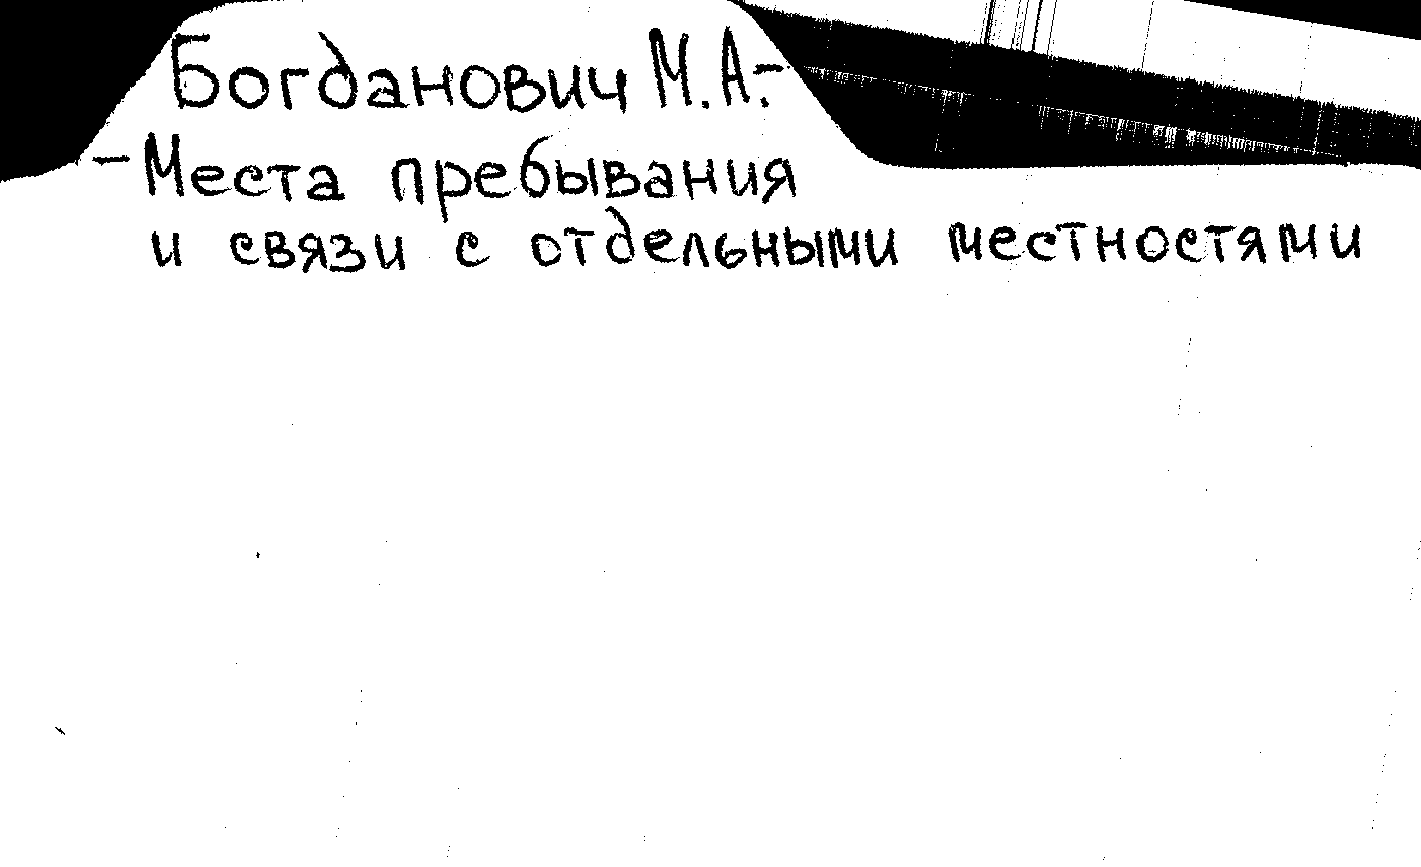 Богданович М.А.-
-Места пребывания
и связи с отдельными местностями